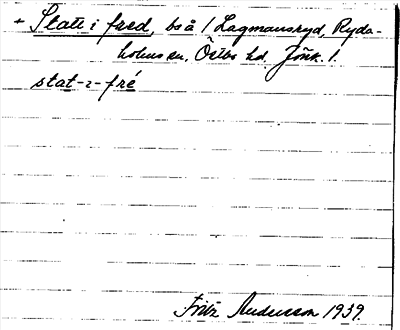 + Statt i fred, bså / Lagmansryd, Ryda-
holms sn, Östbo hd. Jönk. l.
stat-ı-fré
Fritz Andersson 1939.